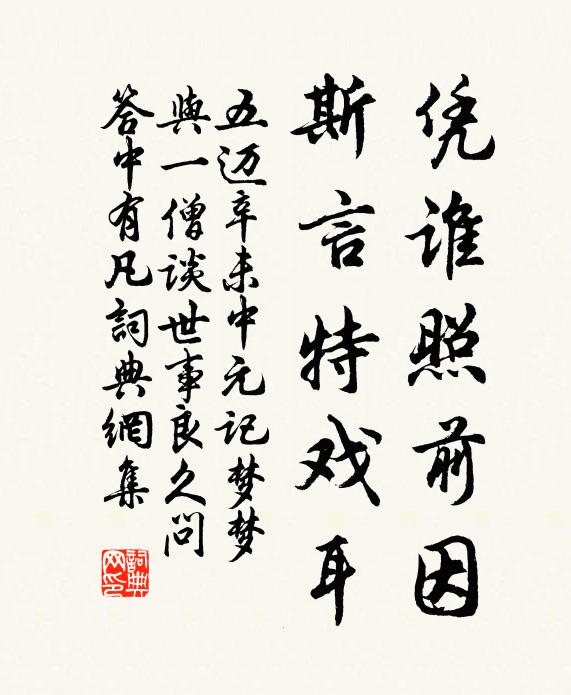 凭谁照前因
斯言特戏耳
五迈辛未中元记梦梦
與一僧談世事良久問
答中有凡詞典網集
詞典网印